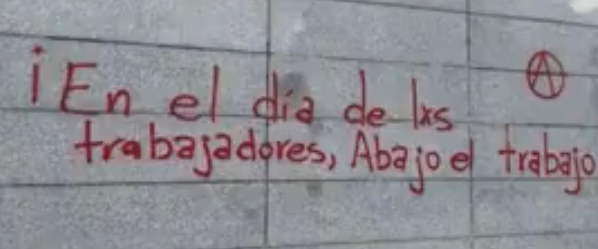 ¡En el dia de lxs Ⓐ
trabajadores, Abajo el trabajo